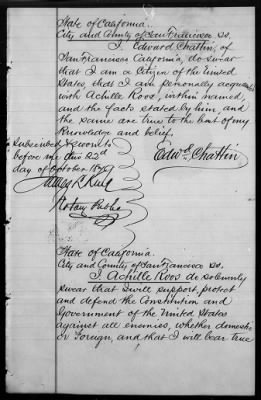 State of California.
City and County of San Francisco ss.
I, Edward Chattin, of
San Francisco California, do swear
that I am a Citizen of the United
States, that I am personally acquainted
with Achille Roos, within named,
and the facts stated by him, and
the same are true to the best of my
Knowledge and belief.
Subscribed & sworn to
before me this 22d
day of October 18
Edwd. Chattin
Notary Public
State of California.
City and County of San Francisco ss.
I, Achille Roos do solemnly
swear that I will support, protect
and defend the Constitution and
Government of the United States
against all enemies, whether domestic
or Foreign, and that I will bear true